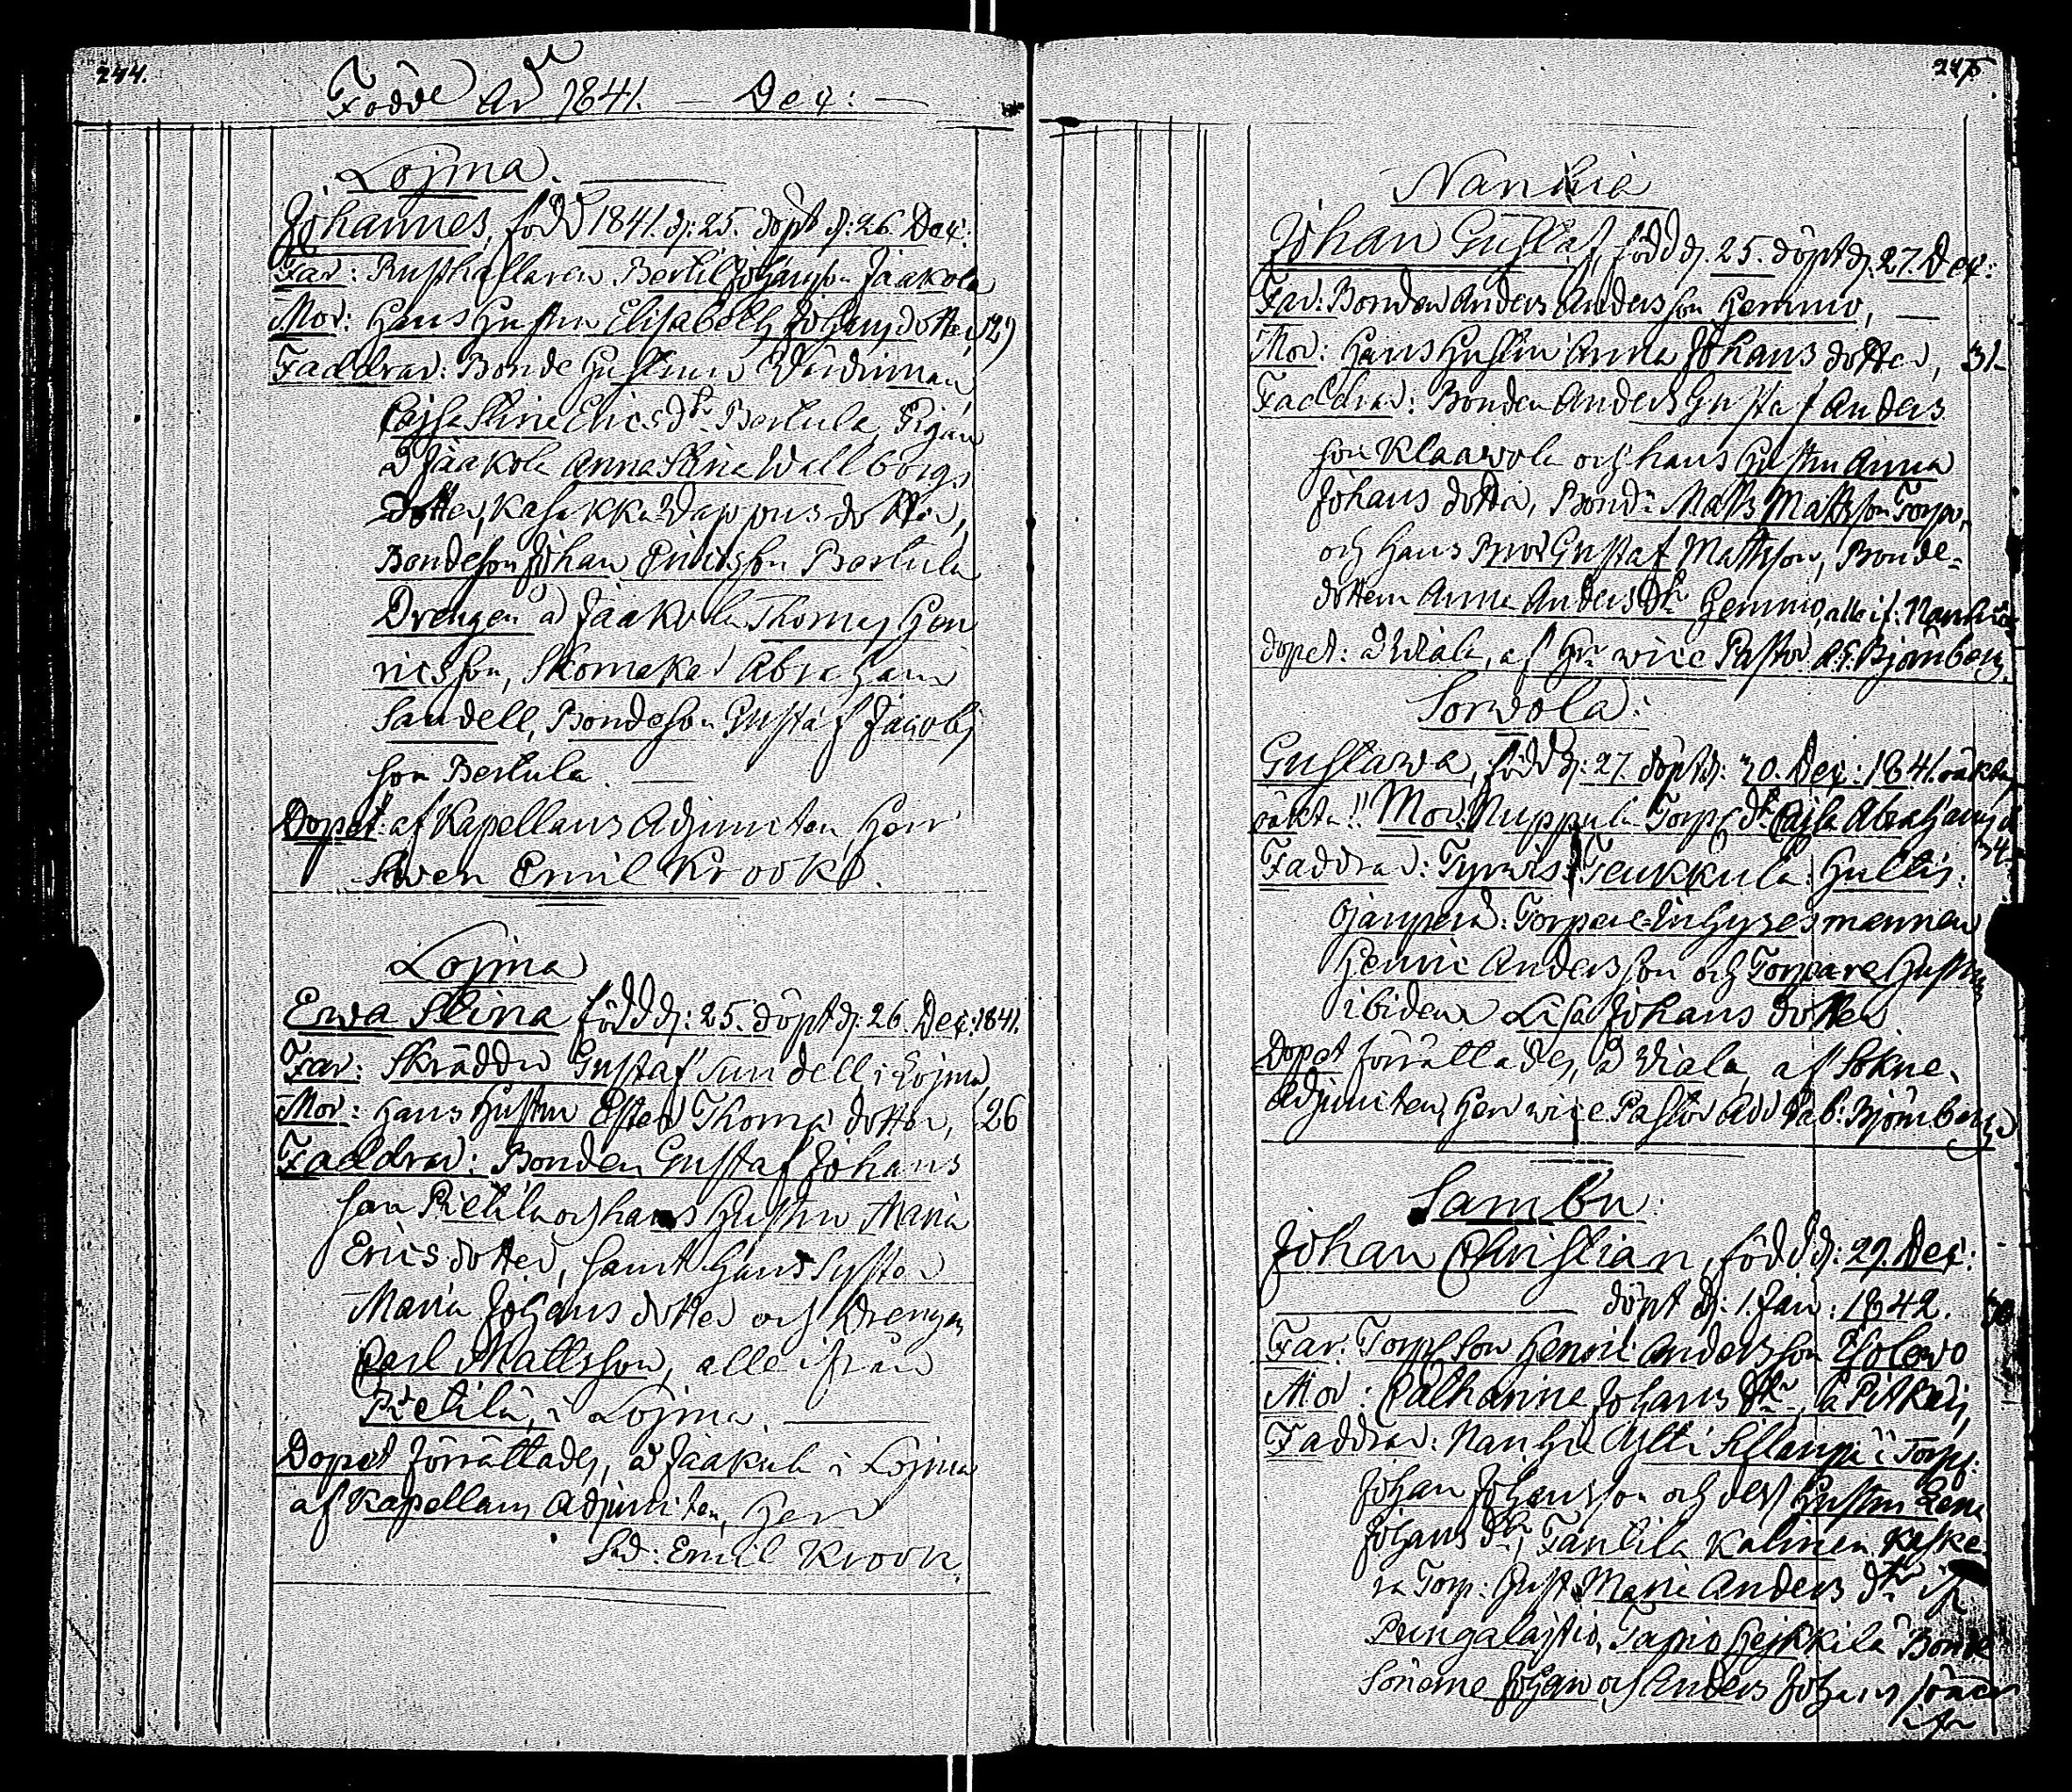 244.
Födde År 1841. — Dec: —
Lojma.
Johannes, född 1841. d: 25. döpt d: 26. Dec:
Far: Rusthållaren Bertil Johansson Jaakola
Mor: Hans Hustru Elisabeth Johansdotter,
Faddrar: Bonde Hustrun
Cajsa Stina Ericsdr Bertula, Pigan
å Jaakola Anna Stina Wallborgs
dotter, dotter,
Bondeson Johan Ericsson Bertula
Drengen å Jaakola Thomas Hen
ricsson, Skomakar Abraham
Sandell, Bondeson Gustaf Jacobs
son Bertula.
Dopet: af Kapellans Adjuncten, Herr
Swen Emil Krook.
Lojma
Ewa Stina född d: 25. döpt d: 26. Dec: 1841.
Far: Skräddar Gustaf Sundell i Lojma
Mor: Hans Hustru Ester Thomæ dotter, 26
Faddrar: Bonden Gustaf Johans
son Pietilä och hans Hustru Maria
Erics dotter, samt hans Syster
Maria Johans dotter och Drengen
Carl Mattsson, alle ifrån
Pietilä, i Lojma.
Dopet förrättades, å Jaakola i Lojma
af Kapellans Adjuncten, Herr
Sv: Emil Krook.
245.
Nanhia
Johan Gustaf, född d: 25. döpt d: 27. Dec:
Far: Bonden Anders Andersson Hemmo,
Mor: Hans Hustru Anna Johans dotter, 31.
Faddrar: Bonden Anders Gustaf Anders
son Klaavola och hans Hustru Anna
Johans dotter, Bond: Matts Mattsson Torpo,
och Hans Bror Gustaf Mattsson, Bonde-
dottern Anna Anders dr Hemmo, alle if: Nanhia
dopet: å Wiala, af Hr vice Pastor A. G. Björnberg.
Sorvola:
Gustawa, född d: 27. döpt d: 30. Dec: 1841. oäkta,
oäkta!! Mor: Nuppula Torp. dr Cajsa Abrahams d
34
Faddrar: Tyrvis: Teukkula: Hultis:
Ojanperä: Torpare-Inhysesmannen
Henric Andersson och Torpare Hustrun
ibidem Lisa Johans dotter
Dopet förrättades, å Wiala, af Sokne-
Adjuncten, Herr vice Pastor Björnberg
Sambu:
Johan Christian, född d: 29. Dec:
döpt d: 1. Jan: 1842.
Far: Torp. Son Henric Andersson
Mor: Catharina Johans dr,
Faddrar: Nanhia Torp:
Johan Johansson och dess Hustru Lena
Johans dr,
Torp: Hust: Maria Anders dr
Heikkilä Bonde
Sönerne Johan och Anders Johans söner